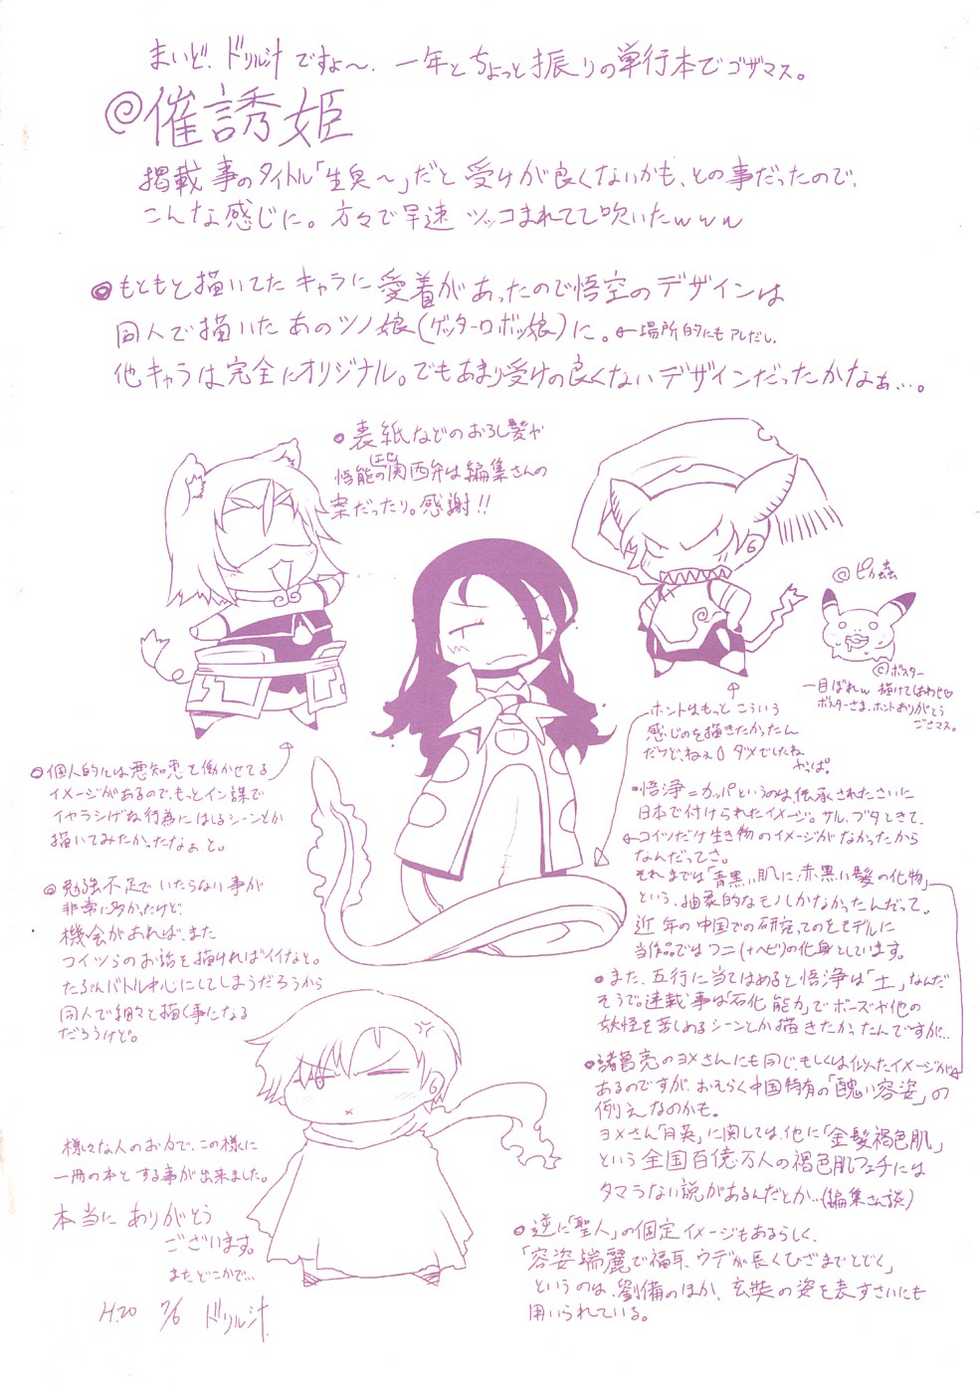 まいど、ドリル汁ですよ〜、一年とちょっと振りの単行本でゴザマス。
@催誘姫
掲載事のタイトル「生臭〜」だと受けが良くないかも、との事だったので、
こんな感じに。方々で早速ツッコまれてて吹いたwww
◎もともと描いてたキャラに愛着があったので悟空のデザインは
同人で描いたあのツノ娘(ゲッターロボッ娘)に。←場所的にもアレだし、
他キャラは完全にオリジナル。でもあまり受けの良くないデザインだったかなぁ…。
◎表紙などのおろし髪や
悟能の(エセ)関西弁は編集さんの
案だったり。感謝!!
@ピカ蟲
©ポスター
一目ぼれw 描けてしあわせ♡
ポスターさま、ホントありがとう
ございマス。
ホントはもっとこういう
感じのを描きたかったん
だけど、ねぇ() ダメでしたね
やっぱ。
◎個人的には悪知恵を働かせてる
イメージがあるので、もっとイン謀で
イヤラシげな行為にはしるシーンとか
描いてみたかったなぁと。
・悟浄=カッパというのは、伝承されたさいに
日本で付けられたイメージ。サル、ブタときて、
←コイツだけ生き物のイメージがなかったから
なんだってさ。
それまでは「青黒い肌に、赤黒い髪の化物」
という、抽象的なモノしかなかったんだって。
近年の中国での研究、てのをモデルに
当作品ではワニ(+ヘビ)の化身としています。
◎勉強不足でいたらない事が
非常に多かったけど、
機会があれば、また
コイツらのお話を描ければイイなと。
たぶんバトル中心にしてしまうだろうから
同人で細々と描く事になる
だろうけど。
◎また、五行に当てはめると悟浄は「土」なんだ
そうで。連載事は「石化能力」でボーズや他の
妖怪を苦しめるシーンとか描きたかったんですが…
◎諸葛亮のヨメさんにも同じ、もしくは似たイメージが
あるのですが、おそらく中国特有の「醜い容姿」の
例えなのかも。
ヨメさん「月英」に関しては、他に「金髪褐色肌」
という全国百億万人の褐色肌フェチには
タマラない説があるんだとか…(編集さん談)
様々な人のお力で、この様に
一冊の本とする事が出来ました。
本当にありがとう
ございます。
またどこかで…
H.20 7/6 ドリル汁
◎逆に「聖人」の固定イメージもあるらしく、
「容姿端麗で福耳、ウデが長くひざまでとどく」
というのは、劉備のほか、玄奘の姿を表すさいにも
用いられている。